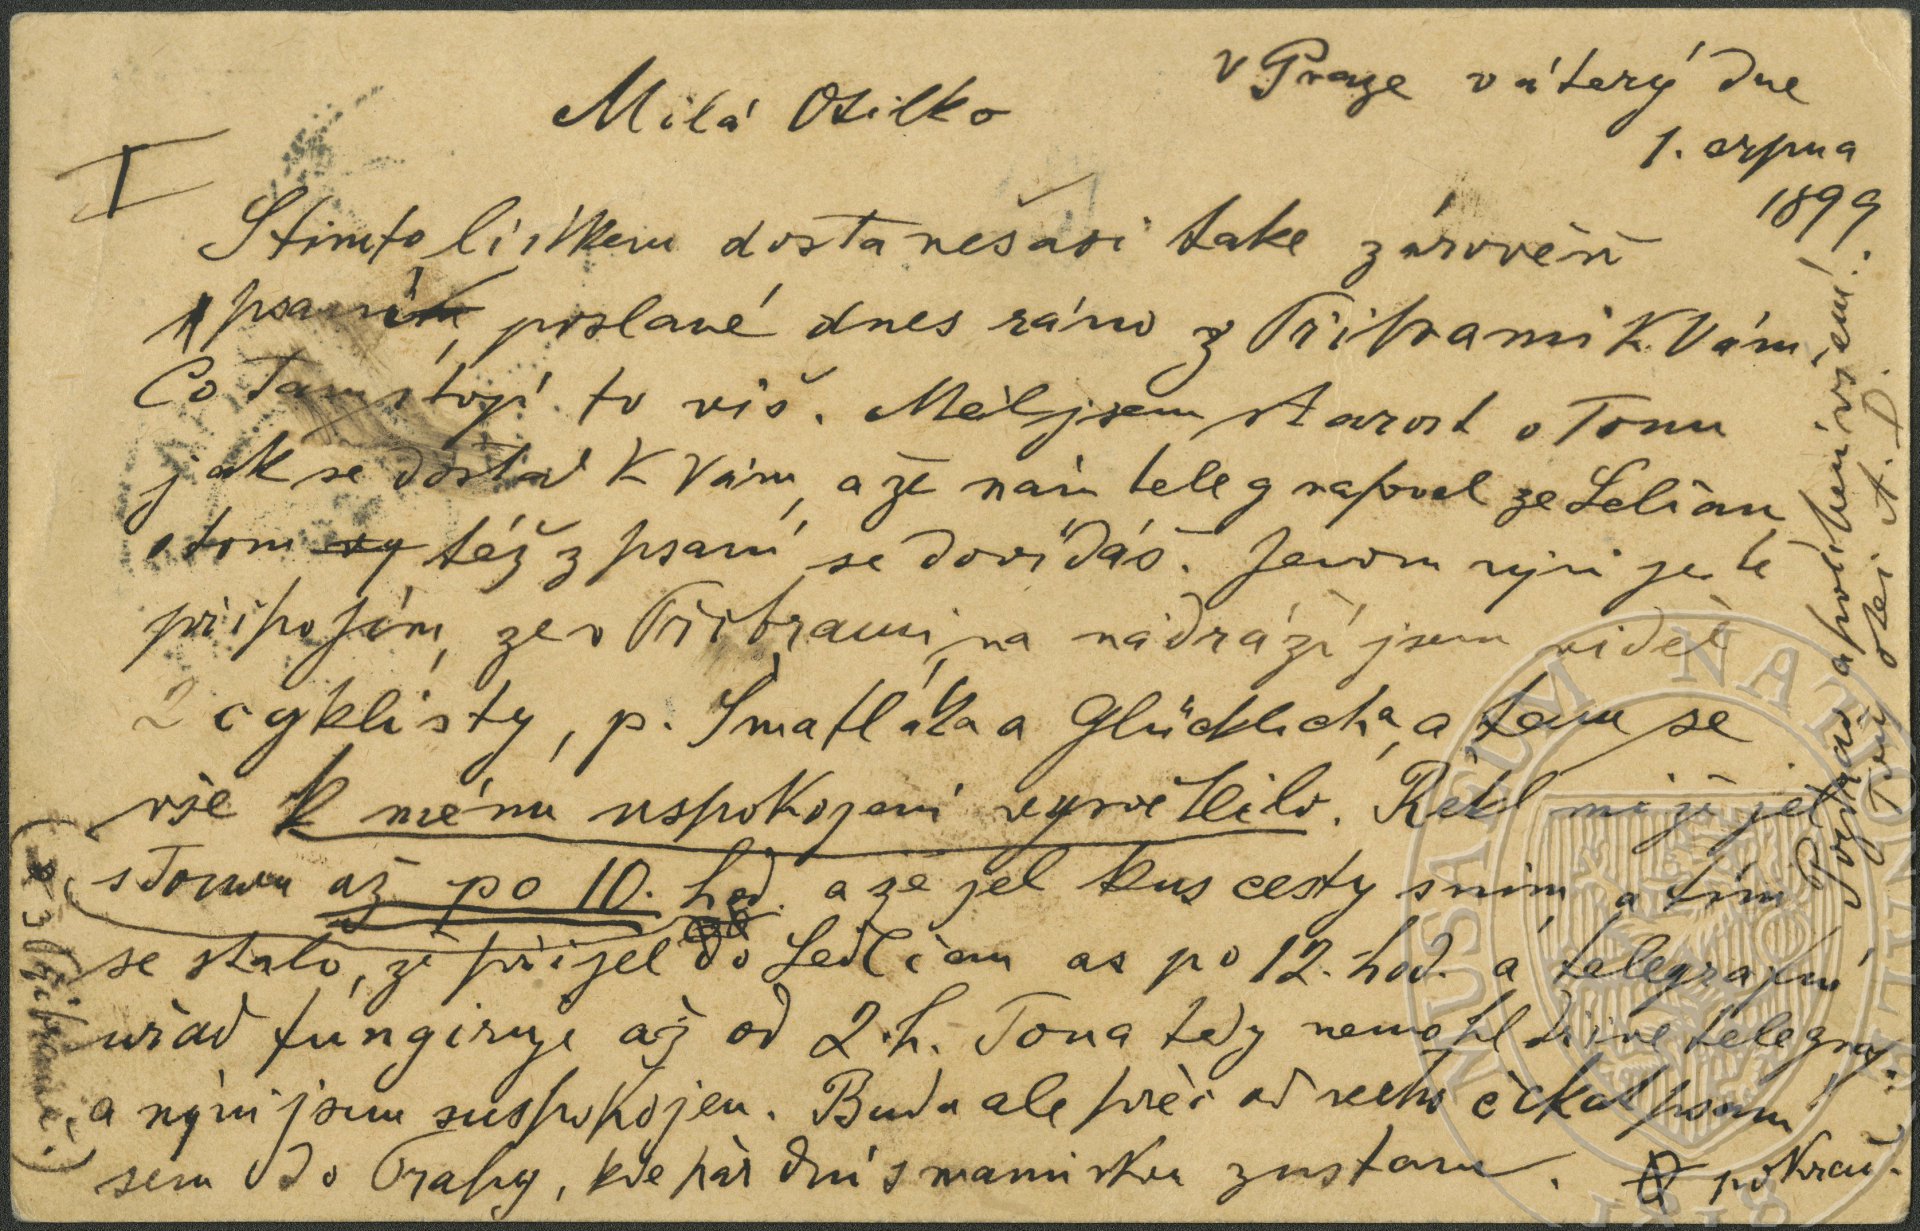 v Praze v úterý dne
1. srpna
1899
Milá Otilko
I
S tímto lístkem dostaneš asi take zároveň
psaní, poslané dnes ráno z Příbrami k Vám.
Co tam stojí to víš. Měl jsem starost o Tonu
jak se dostal k Vám, a že nám telegrafoval ze Sedlčan
o tom též z psaní se dovídáš. Jenom nyní ještě
připojím, že v Příbrami, na nádraží jsem viděl
2 cyklisty, p. Šmatláka a Glücklicha, a tam se
vše k mému uspokojení vysvětlilo. Řekl mi že jel
s Tonou až po 10. hod. a že jel kus cesty s ním, a tím
se stalo, že přijel do Sedlčan as po 12. hod. a telegrafní
uřad fungiruje až od 2. h. Tona tedy nemohl dříve telegraf.
a nyní jsem uspokojen. Budu ale přec od něho čekat psaní
sem do Prahy, kde pár dní s maminkou zustanu. pokrač.
(z Příbramě.)
Pozdrav a políbení všem!
Tvůj otec A. D.
MUSAEUM NATIONALE
1818